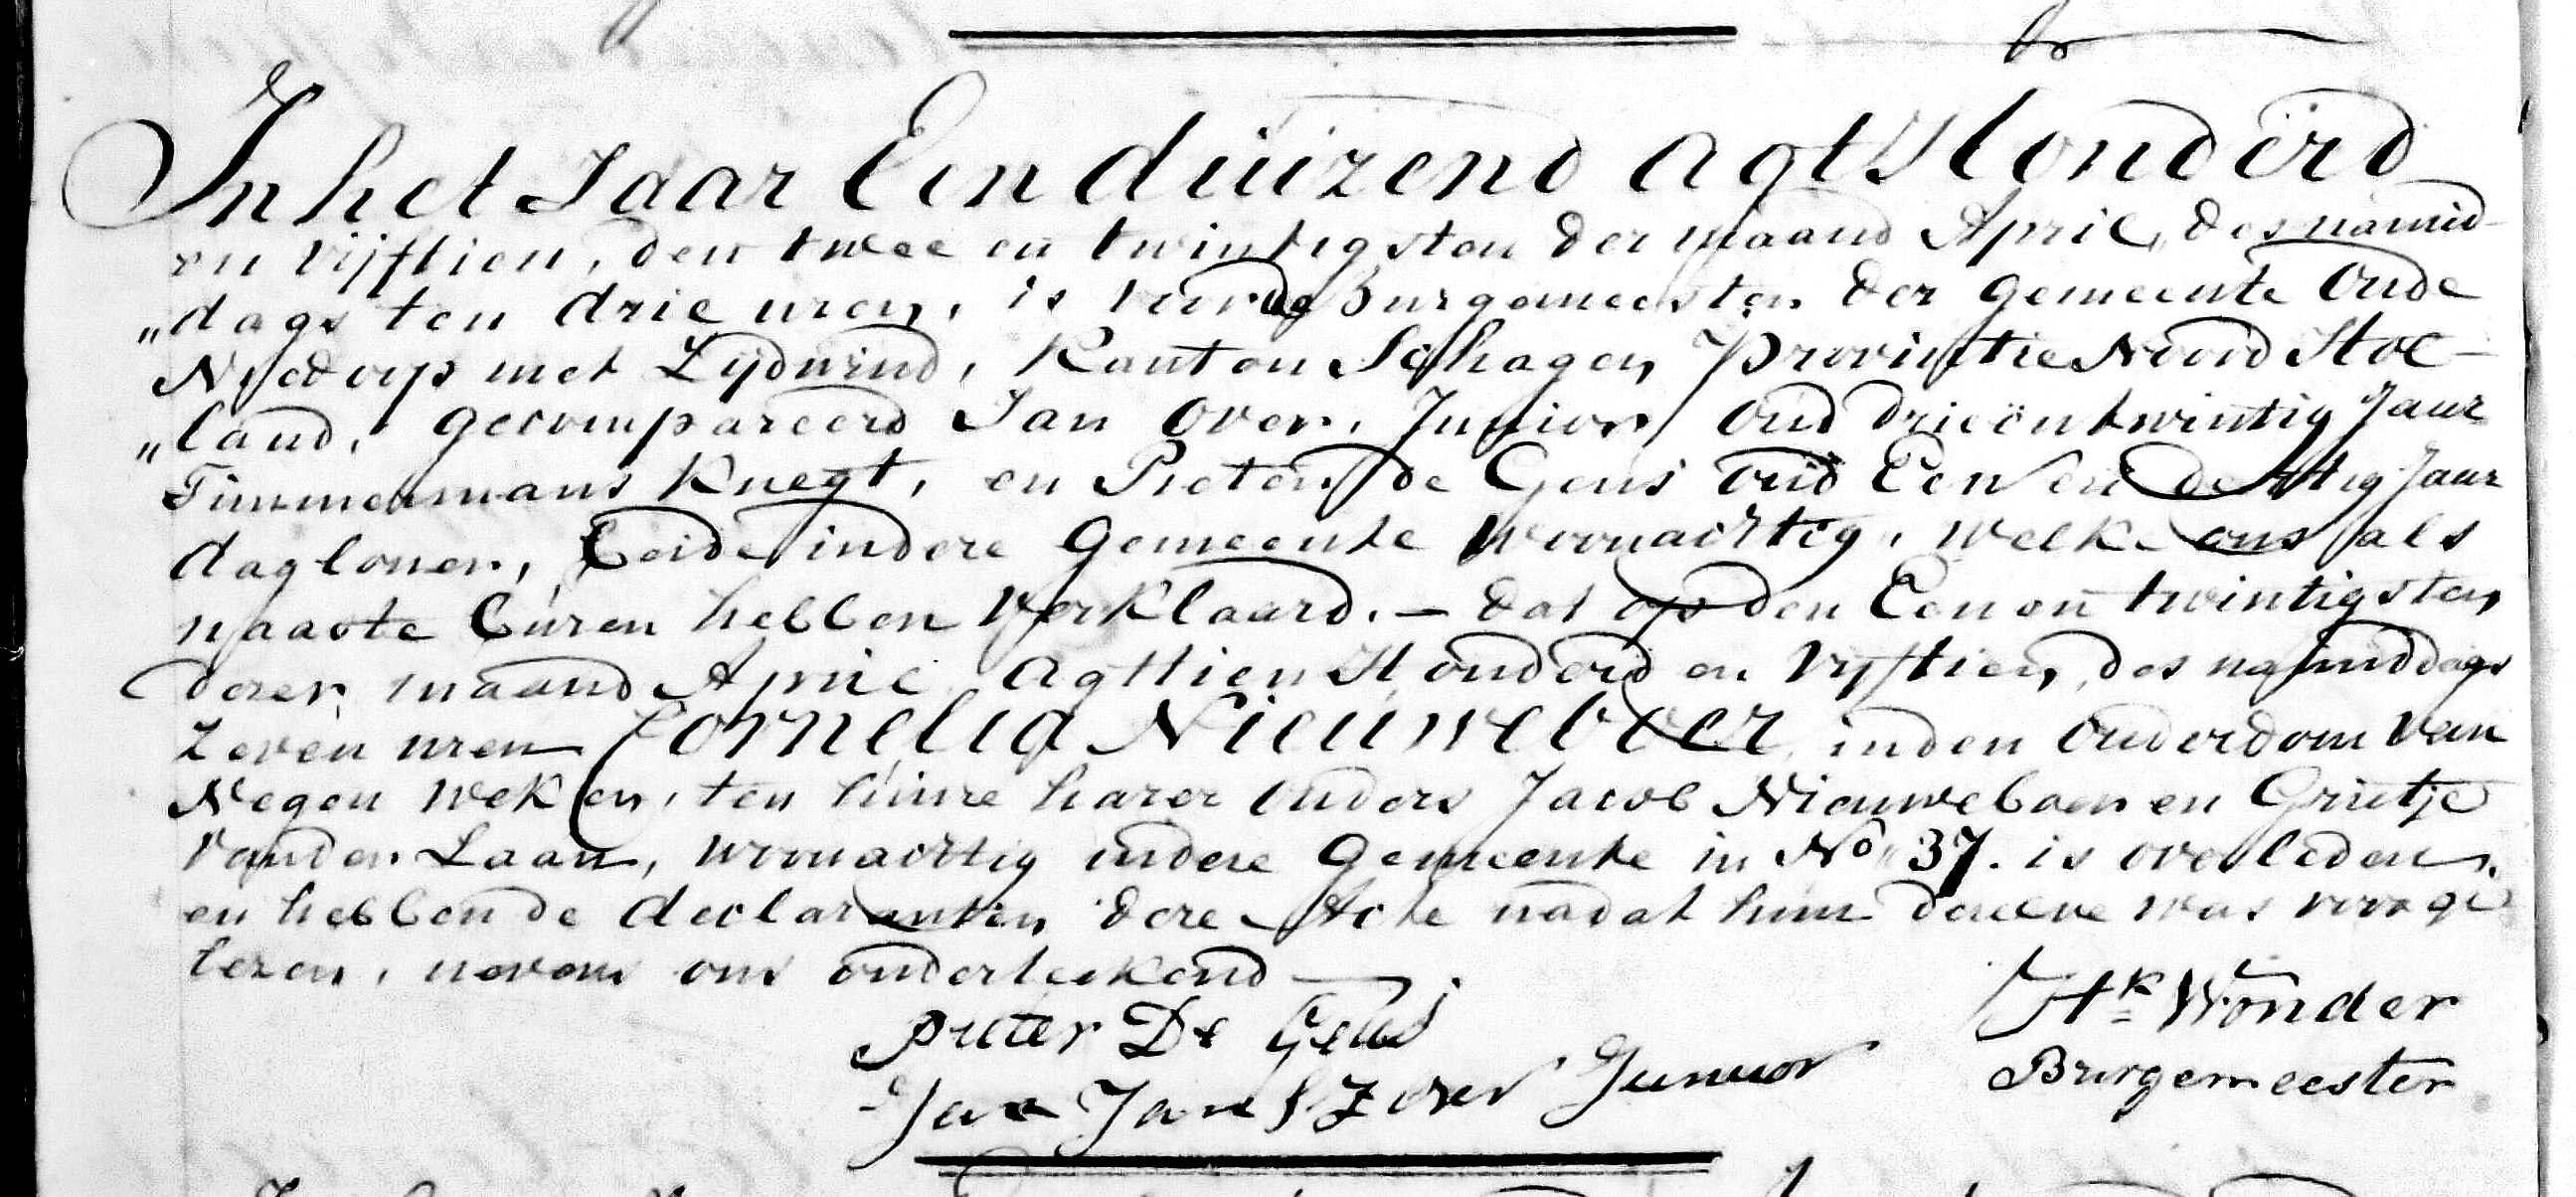 In het Jaar Een duizend agt Honderd
en Vijftien, den twee en twintigsten der maand April, des namid-
„dags ten drie uren, is voor de Burgemeester der Gemeente Oude
Niedorp met Zijdwind, Kanton Schagen, Provintie Noord Hol-
„land, gecompareerd Jan Over, Junior, oud drieëntwintig Jaar
Timmermans Knegt, en Pieter de Geus oud Een en dertig Jaar
dagloner, beide in dere Gemeente woonachtig, welke ons als
naaste buren hebben Verklaard. — dat op den Een en twintigsten
derer maand April agttien Honderd en Vijftien, des namiddags
Zeven uren Cornelia Nieuweboer, in den Ouderdom van
Negen weken, ten huize harer Ouders Jacob Nieuweboer en Grietje
van der Laan, woonachtig in dere Gemeente in No 37. is overleden.
en hebben de declaranten dere Acte nadat hun dezelve was voorge
lezen, nevens ons onderteekend
Pieter De Geus
Hk Wonder
Jan Jansz Over Junior
Burgemeester